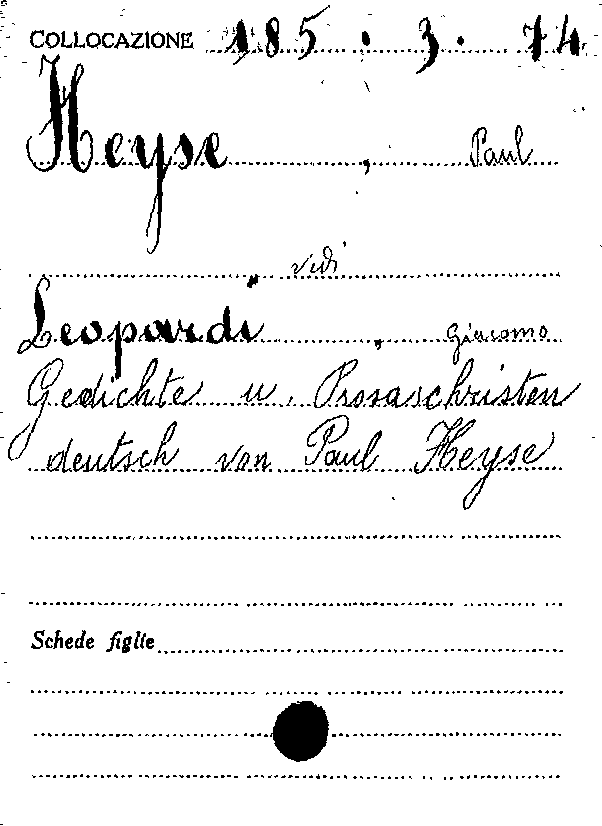 COLLOCAZIONE 185 . 3 . 74
Heyse , Paul
vidi
Leopardi , Giacomo
Gedichte u. Prosaschristen
deutsch von Paul Heyse
Schede figlie